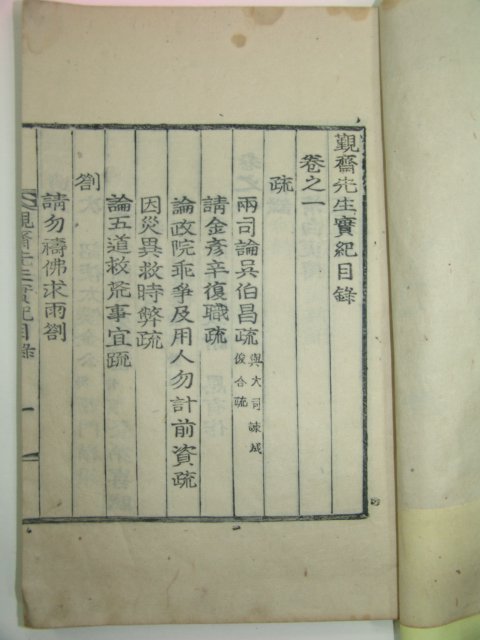 覲齋先生實紀目錄
卷之一
疏
兩司論吳伯昌疏 與大司諫成
俊合疏
請金彥辛復職疏
論政院乖爭及用人勿計前資疏
因災異救時弊疏
論五道救荒事宜疏
劄
請勿禱佛求雨劄
覲齋先生實紀目錄 一